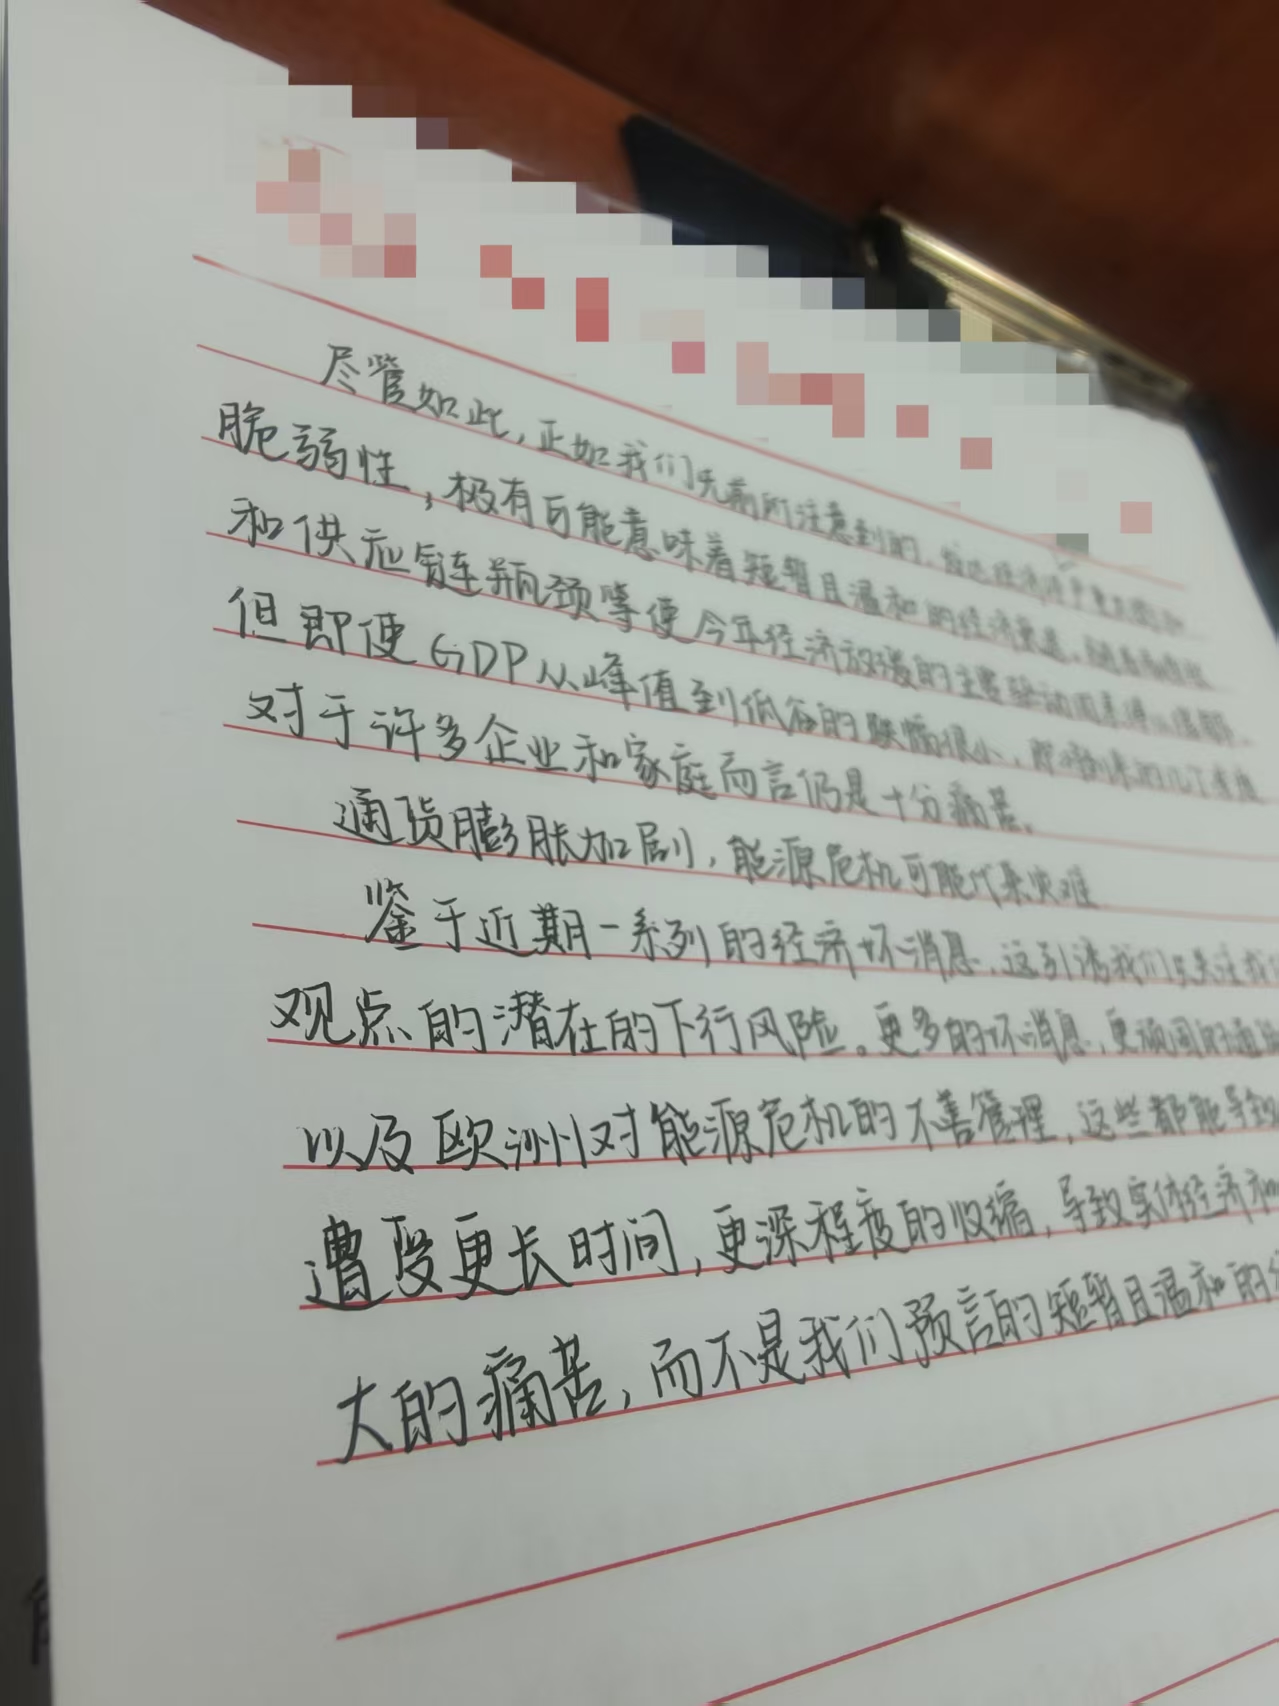 尽管如此,正如我们先前所注意到的,
脆弱性,极有可能意味着短暂且温和的经济衰退,随着
和供应链瓶颈等使今年经济放缓的主要驱动因素得以缓解.
但即使GDP从峰值到低谷的跌幅很小,即将到来的几个季度
对于许多企业和家庭而言仍是十分痛苦.
通货膨胀加剧,能源危机可能代来灾难
鉴于近期一系列的经济坏消息,这引诱我们关注我
观点的潜在的下行风险。更多的坏消息,更顽固的通
以及欧洲对能源危机的不善管理,这些都能导致
遭受更长时间,更深程度的收缩,导致实体经济和
大的痛苦,而不是我们预言的短暂且温和的